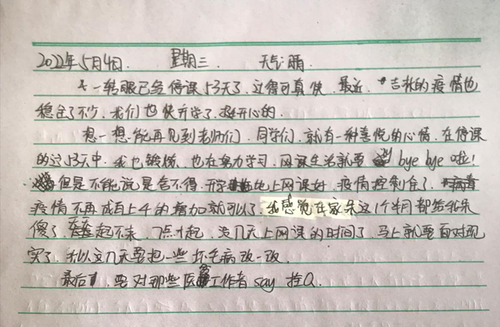 2022年5月4日 星期三 天气:晴
一转眼已经停课53天了,过得可真快,最近,吉林的疫情也
稳定了不少,我们也快开学了,挺开心的。
想一想能再见到老师们,同学们,就有一种喜悦的心情,在停课
的这53天中,我也锻炼,也在努力学习,网课生活就要 bye bye 啦!
但是不能说是舍不得,开学比上网课好,疫情控制住了,
疫情不再成百上千的增加就可以了,我感觉在家呆这1个半月都给我呆
傻了 起不来,7点才起,没几天上网课的时间了,马上就要面对现
实了,所以这几天要把一些坏毛病改一改。
最后,要对那些医务工作者say 拴Q。